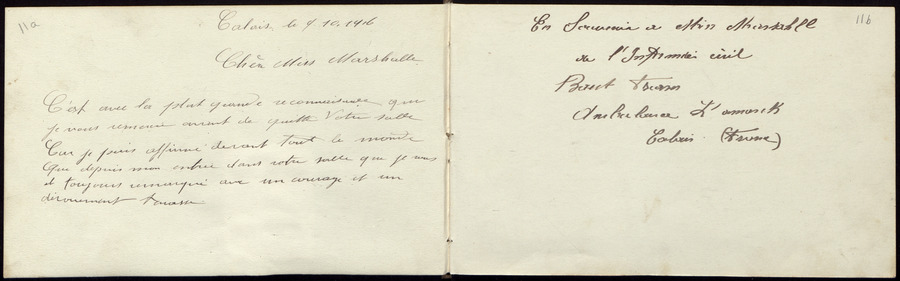 11a
Calais, le 4.10.1916
Chère Miss Marshalle.
C'est avec la plus grande reconnaissance que
je vous remercie avant de quitte Votre salle
Car je puis affirmé devant tout le monde
Que depuis mon entrée dans votre salle que je vous
et toujours remarqué avec un courage et un
dévouement
11b
En Souvenir a Miss Marshall
de l'Infirmier civil
Ambulance L'amarck
Calais (France)